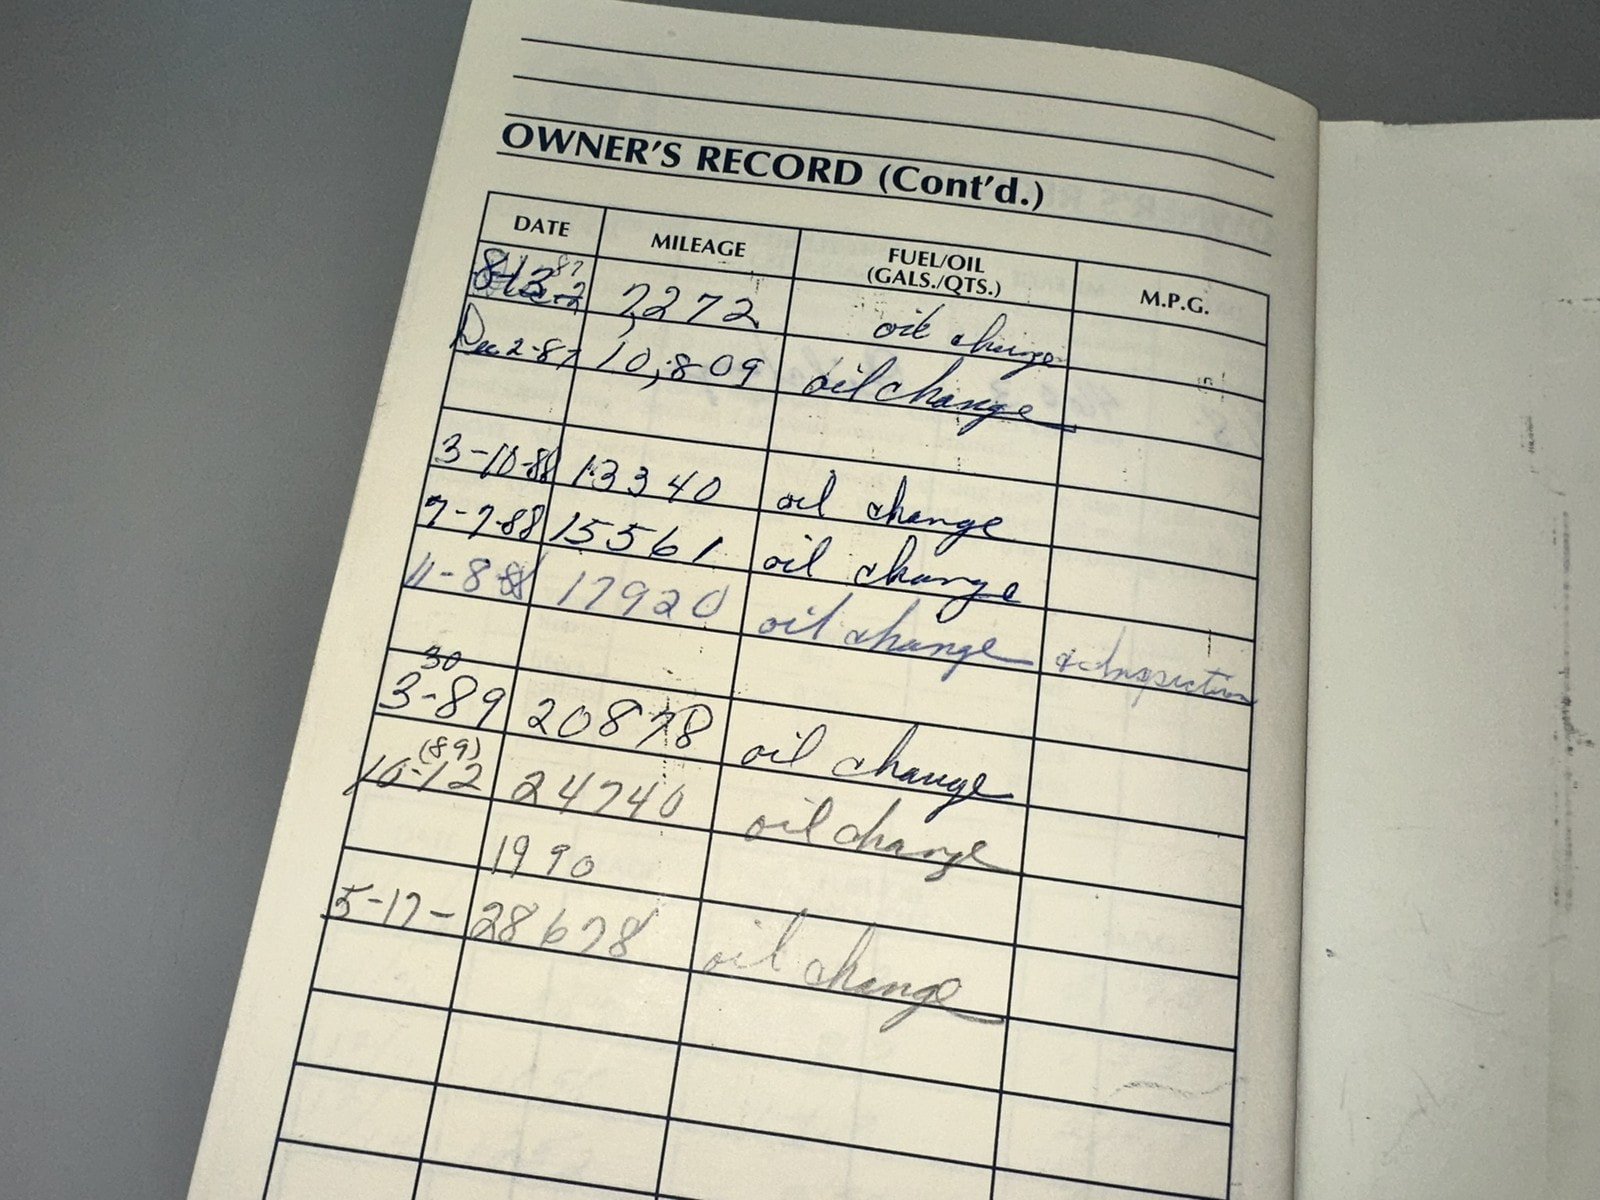 OWNER'S RECORD (Cont'd.)
DATE MILEAGE FUEL/OIL (GALS./QTS.) M.P.G.
87
8-13 7,272 oil change
Dec 2-87 10,809 oil change
3-10-88 13340 oil change
7-7-88 15561 oil change
11-8-88 17920 oil change & Inspection
30
3-89 20878 oil change
(89)
10-12 24740 oil change
1990
5-17- 28678 oil change